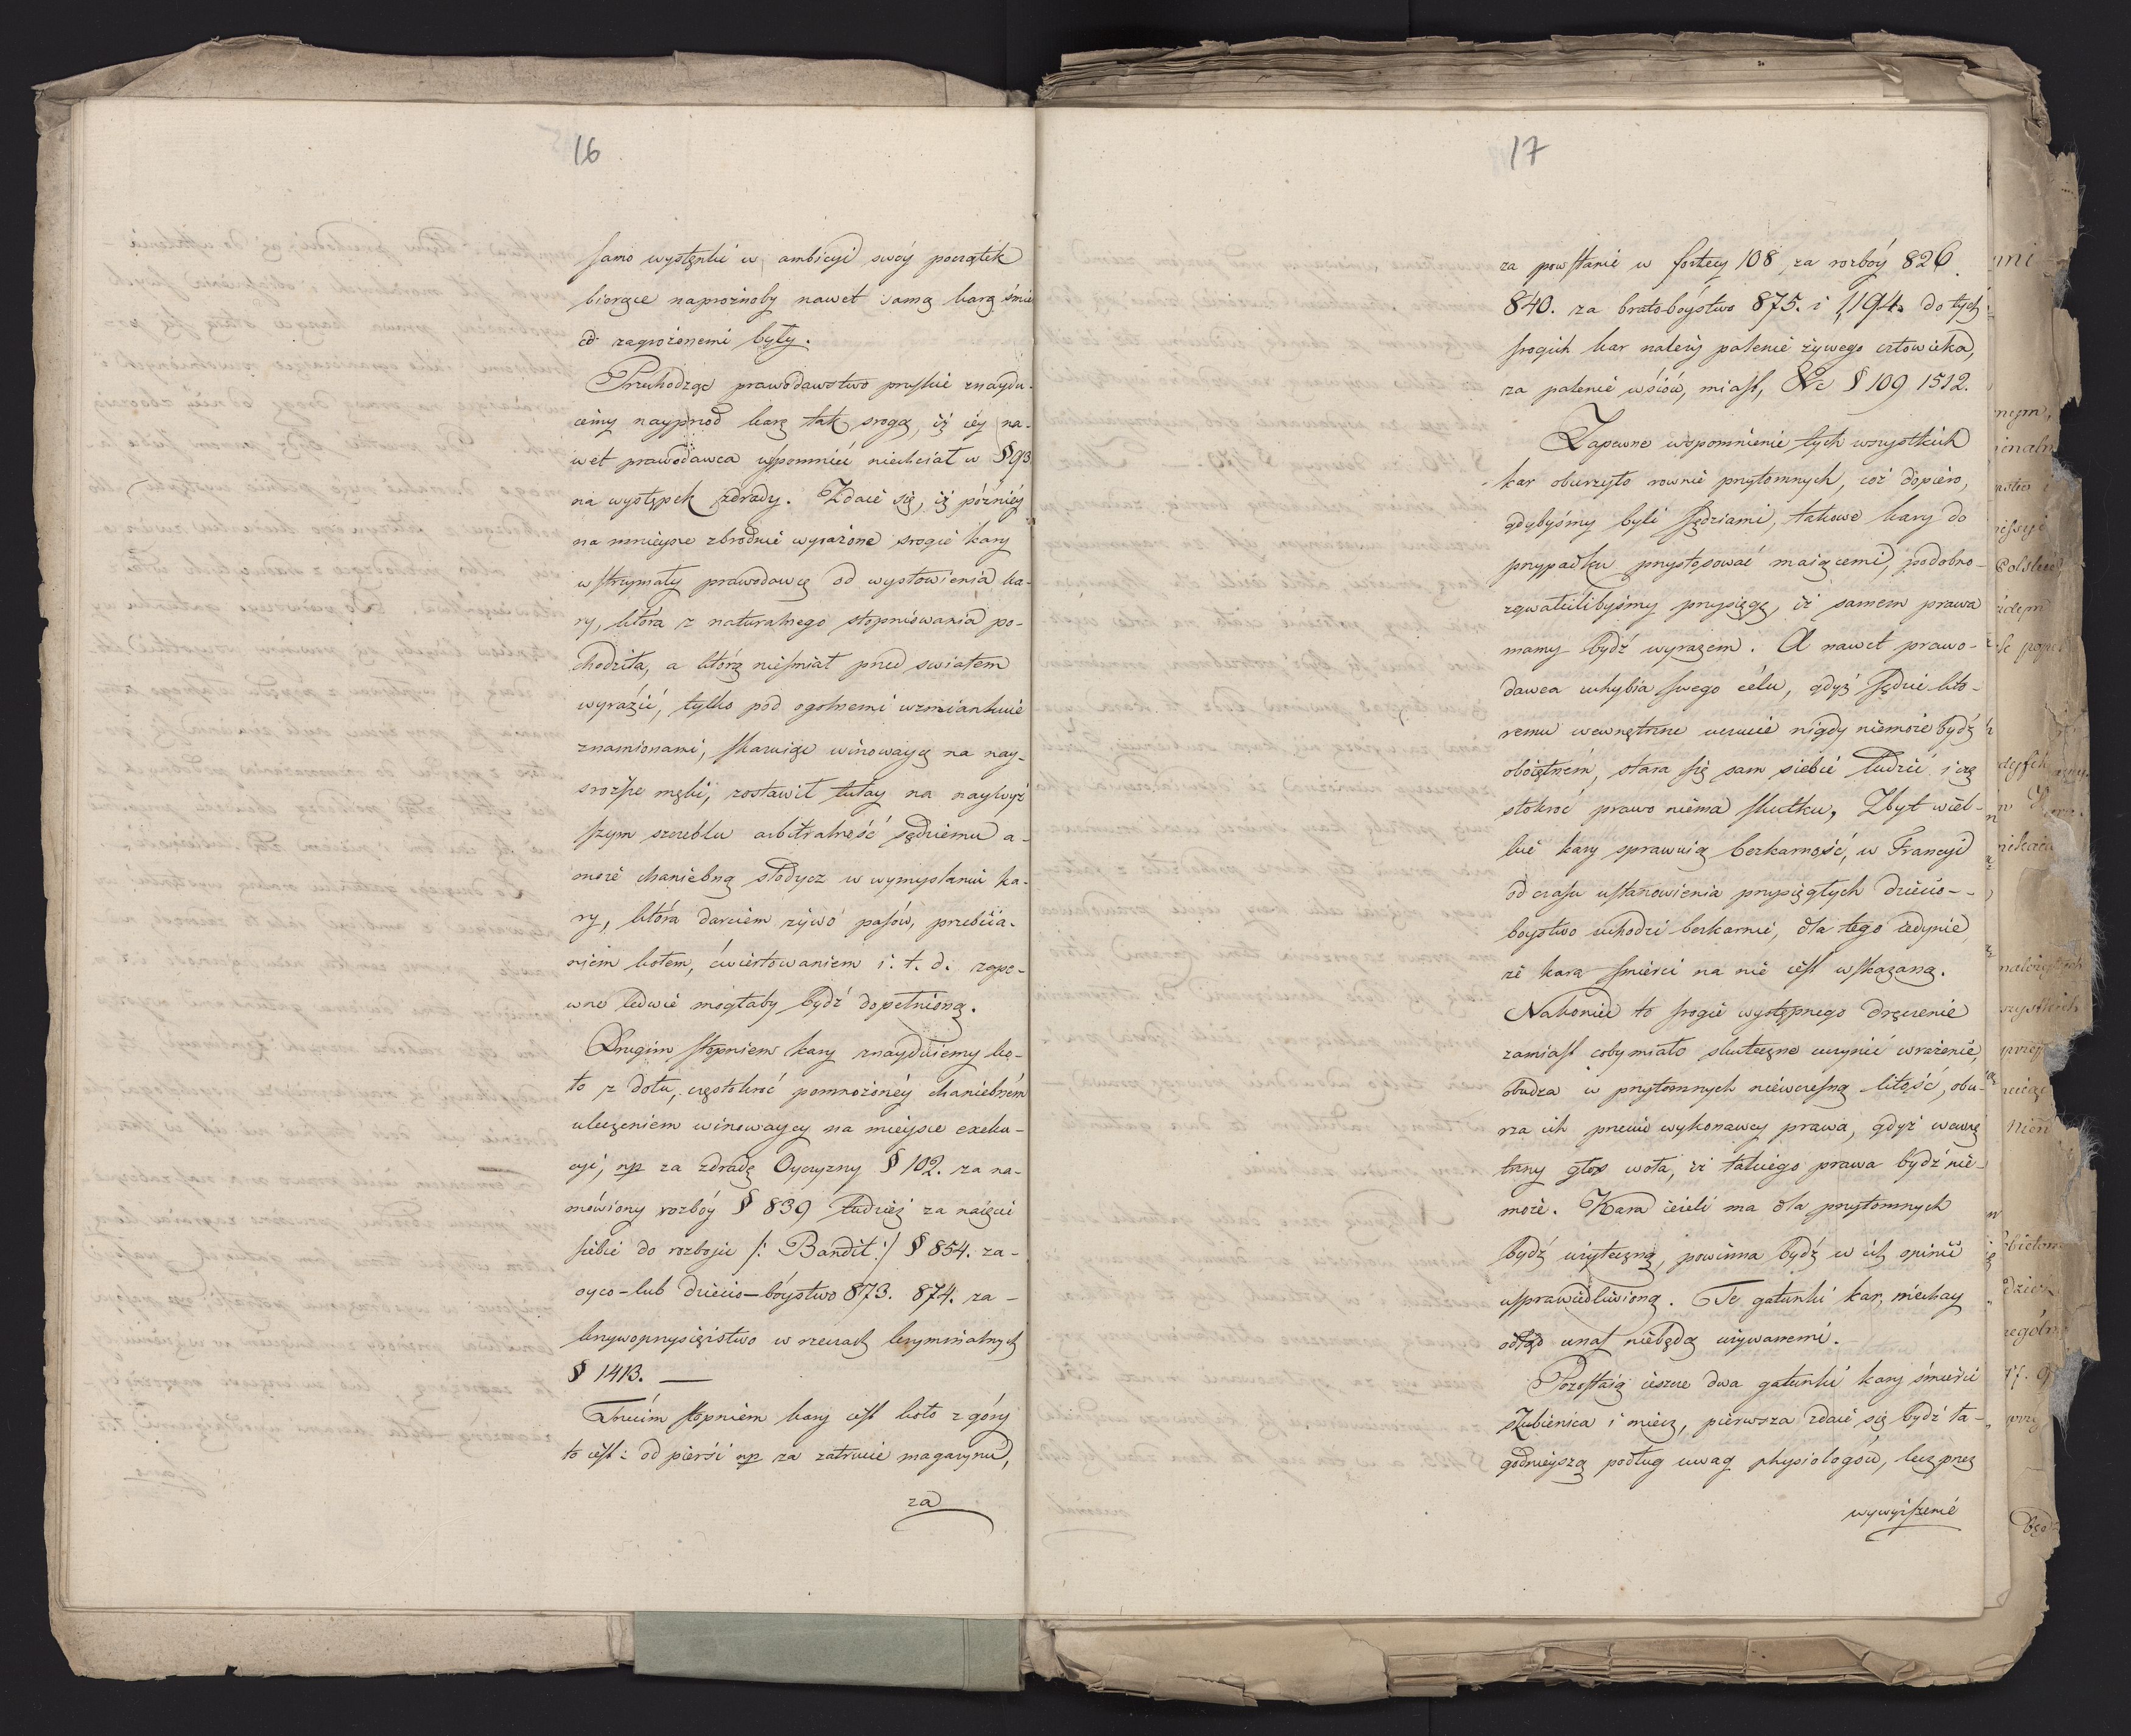 16
samo występki w ambicyi swóy początek
biorące naprożnoby nawet samą karą śmier
ci zagrożenemi były.
Przechodząc prawodawstwo pruskie znaydu-
iemy nayprzod karę tak srogą, iż iéy na-
wet prawodawca wspomnieć niechciał w § 93
na występek zdrady. Zdaie się, iż późniéy
na mnieysze zbrodnie wyrażone srogie kary
wstrzymały prawodawcę od wysłowienia ka-
ry, która z naturalnego stopniowania po-
chodziła, a którą nieśmiał przed swiatem
wyrazić, tylko pod ogolnemi wzmiankuie
znamionami, skazuiąc winowaycę na nay-
sroższe męki, zostawił tutay na naywyż
szym szczeblu arbitralność sędziemu a-
może chaniebną słodycz w wymyslaniu ka-
ry, która darciem żywo pasów, przebiia-
niem kołem, ćwiertowaniem i. t. d. zape-
wne ledwie mogłaby bydź dopełnioną.
Drugim stopniem kary znayduiemy ko-
ło z dołu, częstokroć pomnożonéy chaniebném
wleczeniem winowaycy na mieysce exeku-
cyi, np za zdradę Oyczyzny § 102. za na-
mówiony rozbóy § 839 tudzież za naięcie
siebie do rozboju /: Bandit :/ § 854. za-
oyco-lub dziecio-bóystwo 873. 874. za-
krzywoprzysięstwo w rzeczach kryminalnych
§ 1413. —
Trzecim stopniem kary iest koło z góry
to iest: od piersi np za zatrucie magazynu,
za
17
za powstanie w fortecy 108, za rozbóy 826.
840. za bratobóystwo 875. i 1194. do tych
srogich kar należy palenie żywego człowieka,
za palenie wśiów, miast, &c § 109 1512.
Zapewne wspomnienie tych wszystkich
kar oburzyło rownie przytomnych, coż dopiero,
gdybyśmy byli sędziami, takowe kary do
przypadku przystosować maiącemi, podobno-
zgwałcilibyśmy przysięgę, iż samem prawa
mamy bydź wyrazem. A nawet prawo-
dawca uchybia swego célu, gdyż sędzie któ-
remu wewnętrzne uczucie nigdy niemoże bydź
oboiętném, stara się sam siebie łudzić i czę
stokroć prawo niéma skutku. Zbyt wiel-
kie kary sprawuią bezkarność, w Francyi
od czasu ustanowienia przysięgłych dziecio-
boystwo uchodzi bezkarnie, dla tego iedynie,
że kara smierci na nie iest wskazaną.
Nakoniec to srogie występnego dręczenie
zamiast coby miało skuteczne uczynić wrażenie,
obudza w przytomnych niéwczesną litość, obu-
rza ich przeciw wykonawcy prawa, gdyż wewnę
trzny głos woła, iż takiego prawa bydź nie-
może. Kara ieżeli ma dla przytomnych
bydź użyteczną, powinna bydź w ich opinii
usprawiedliwioną. Te gatunki kar, niechay
odtąd unas niebędą używanemi.
Pozostaią ieszcze dwa gatunki kary śmierci
szubienica i miecz, pierwsza zdaie się bydź ła-
godnieyszą podług uwag physiologów, lecz przez
wywyższenie